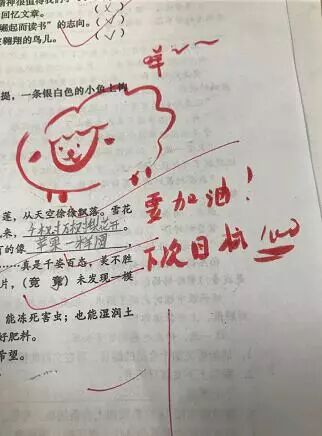 精神很值得我们
回忆文章。(×)
崛起而读书”的志向。(√)
翱翔的鸟儿。(√)
咩~~
提,一条银白色的小鱼上钩
莲,从天空徐徐飘落。雪花
来,千枝万枝梨花开。
有的像苹果一样圆,
……真是千姿百态,美不胜
片,(竟 竟)未发现一模
要加油!
下次目标100
,能冻死害虫;也能湿润土
好肥料。
希望。